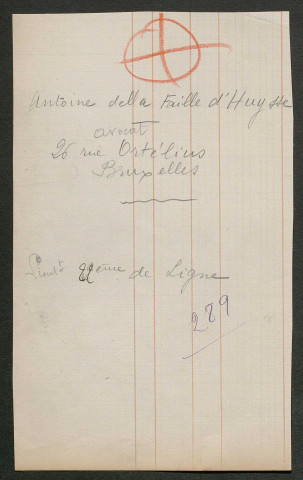 Antoine della Faille d'Huysse
avocat
26 rue Ortélius
Bruxelles
Lieut^t 2ème de Ligne
289